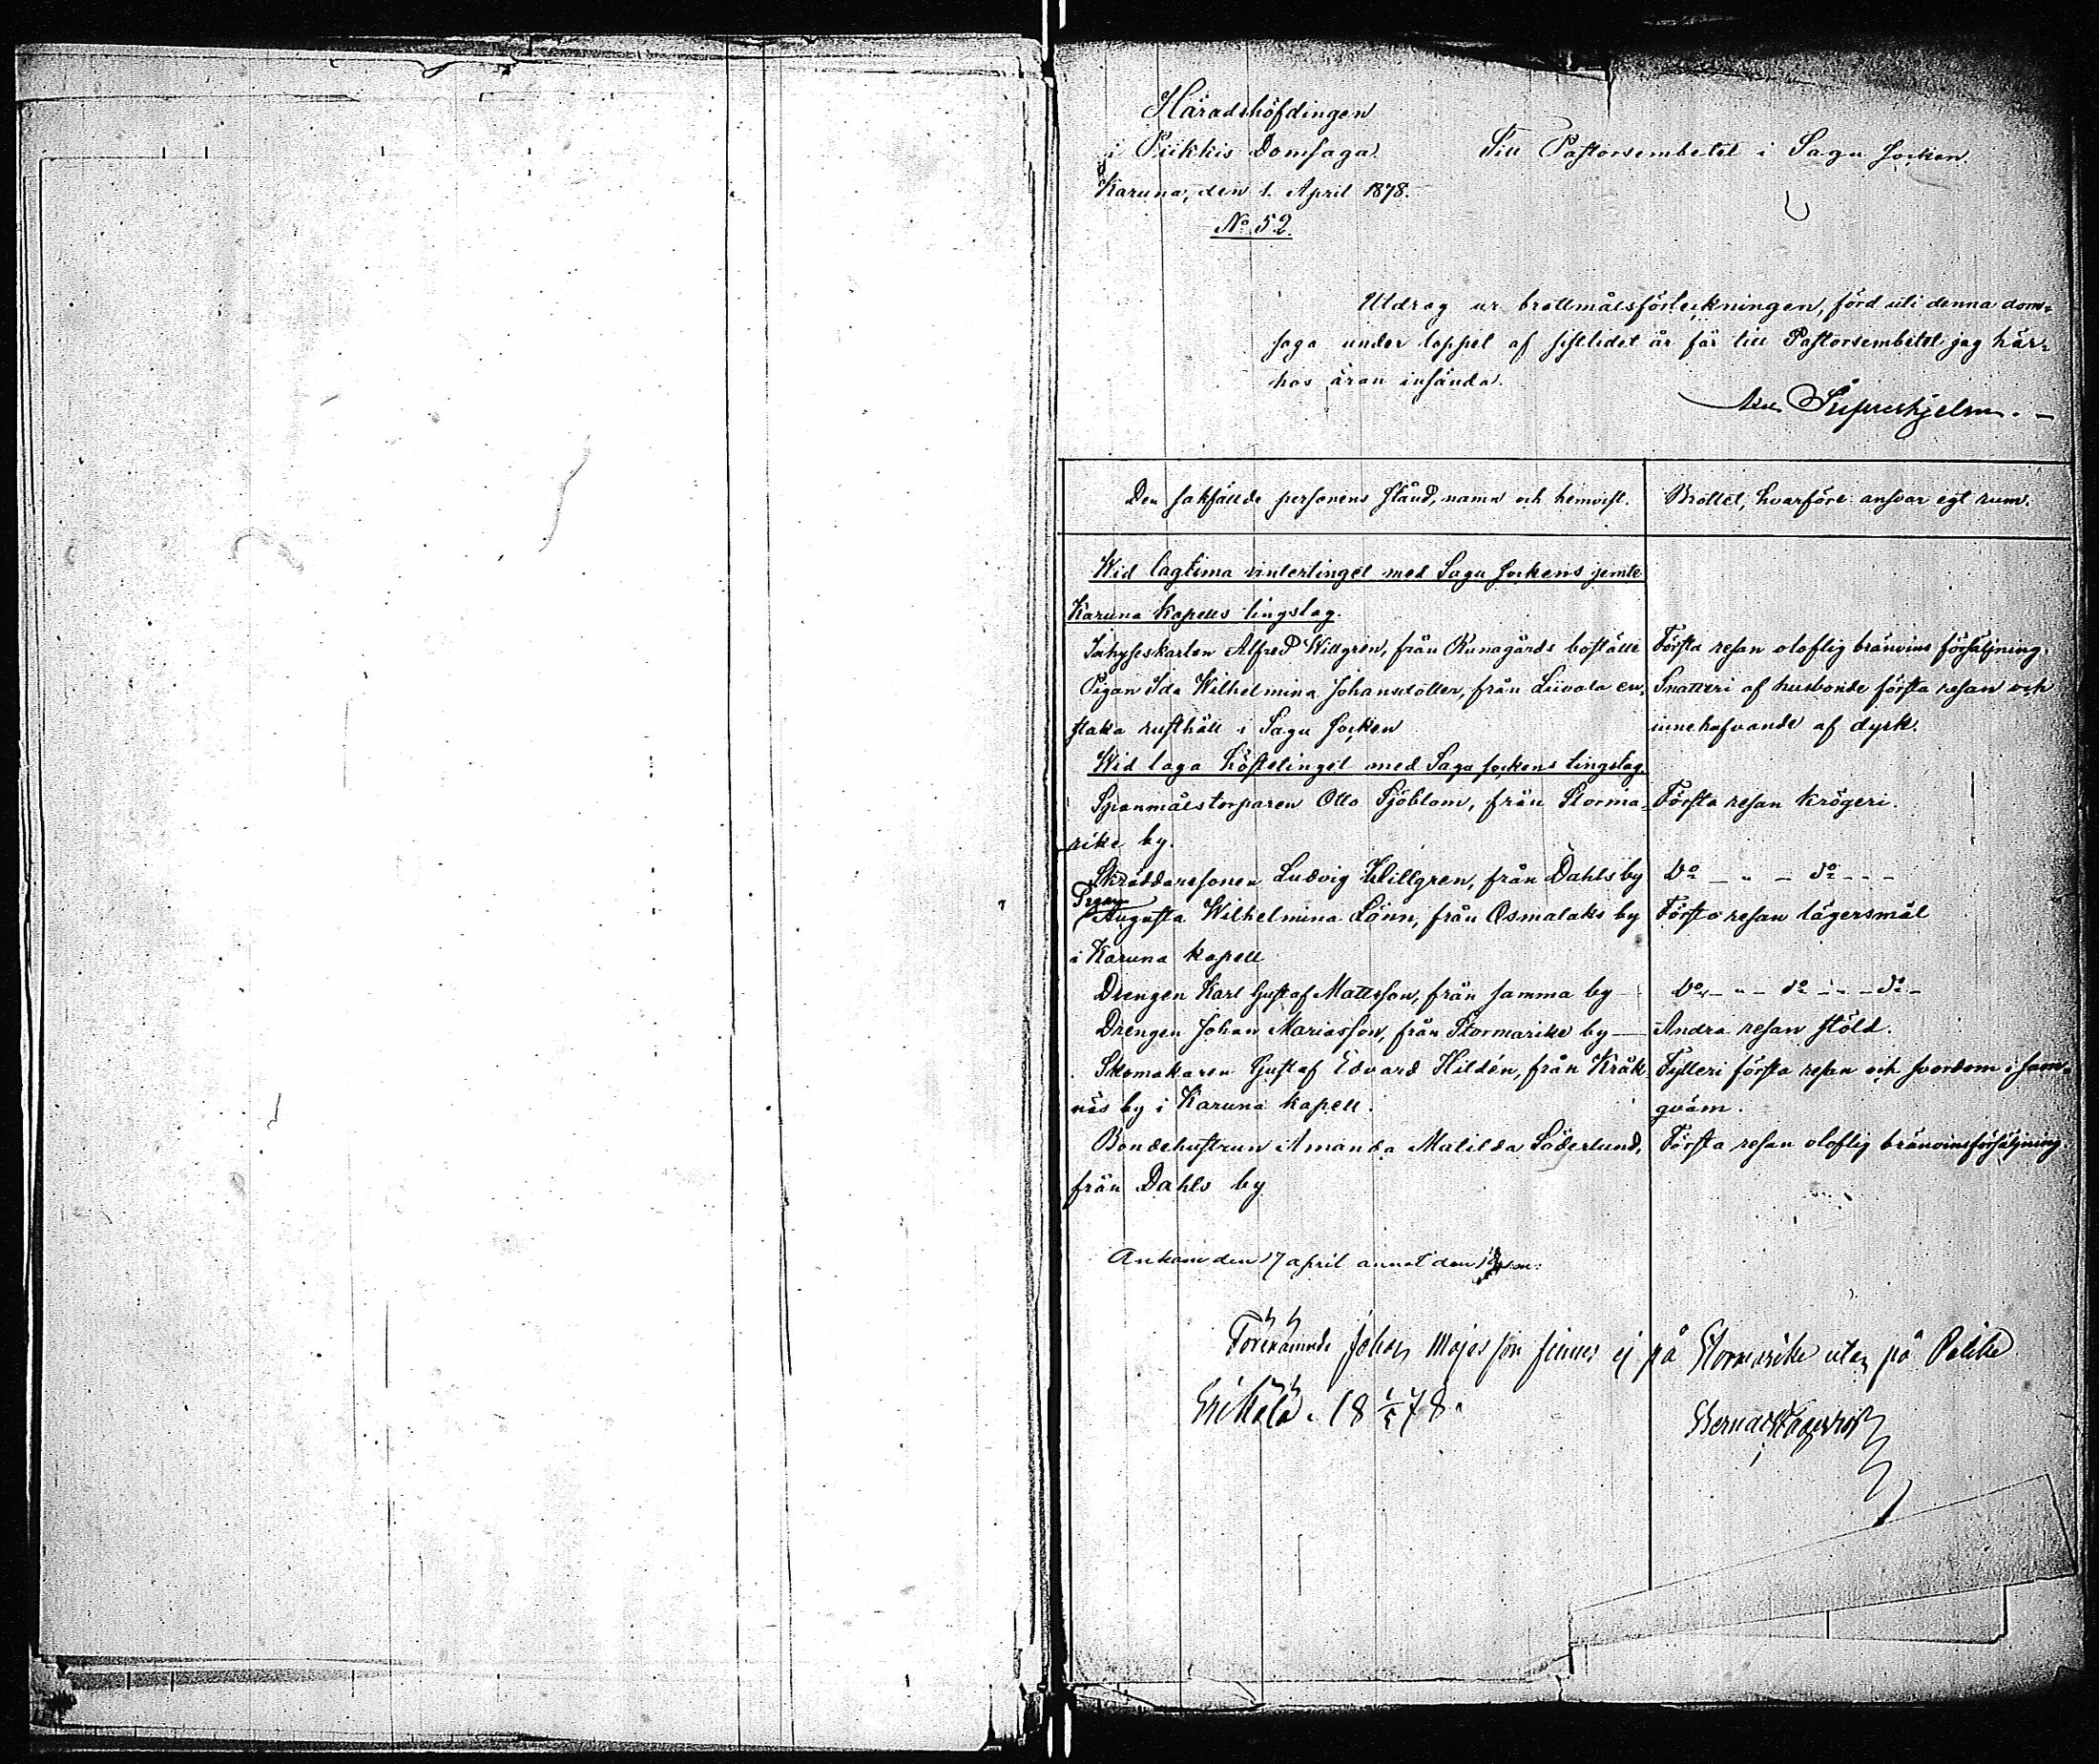 Häradshöfdingen
i Piikkis Domsaga.
Till Pastorsembetet i Sagu Socken.
Karuna, den 1. April 1878.
No 52.
Utdrag ur brottmålsförteckningen, förd uti denna dom=
saga under loppet af sistlidet år får till Pastorsembetet jag här=
hos äran insända.
Den sakfällde personens stånd, namn och hemvist.
Brottet, hvarföre ansvar egt rum.
Wid lagtima vintertinget med Sagu Sockens jemte
Karuna Kapells tingslag.
Inhyseskarlen Alfred Willgren, från Runagårds boställe
Första resan oloflig bränvins försäljning.
Pigan Ida Wilhelmina Johansdotter, från Liivola en=
Snatteri af husbonde första resan och
staka rusthåll i Sagu Socken
innehafvande af dyrk.
Wid laga hösttinget med Sagu sockens tingslag.
Spanmålstorparen Otto Sjöblom, från Storma=
Första resan krögeri.
rike by.
Skräddaresonen Ludvig Willgren, från Dahls by
Do — „ — do — — —
Pigan
Augusta Wilhelmina Lönn, från Osmalaks by
Första resan lägersmål
i Karuna kapell
Drengen Karl Gustaf Mattsson, från samma by —
Do — „ — do — „ — do —
Drengen Johan Mariasson, från Stormarike by —
Andra resan stöld.
Skomakaren Gustaf Edvard Hildén, från Kråk=
Fylleri första resan och svordom i sam=
näs by i Karuna kapell.
qväm.
Bondehustrun Amanda Matilda Söderlund,
Första resan oloflig bränvinsförsäljning
från Dahls by
Ankom den 17 april annot den
Förenämnde Johan Majasson finnes ej på Stormarike utan på
18 1/5 78.